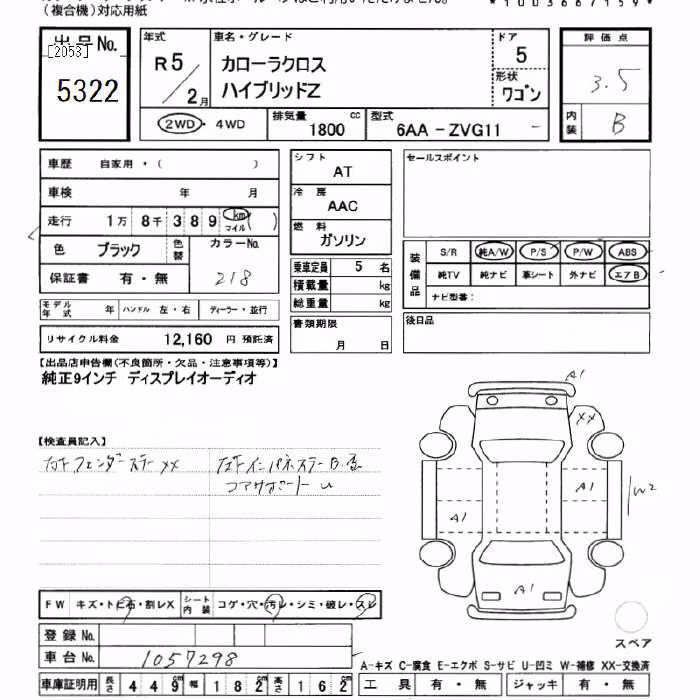 (複合機)対応用紙
*1003667159*
出品No.
[2053]
5322
年式
R5/2月
車名・グレード
カローラクロス
ハイブリッドZ
ドア
5
形状
ワゴン
評価点
3.5
内装
B
2WD・4WD
排気量
1800 cc
型式
6AA-ZVG11
車歴 自家用・( )
車検 年 月
走行 1万 8千 389 km マイル ( )
色 ブラック 色替
カラーNo.
218
保証書 有・無
モデル年式 年 ハンドル 左・右 ディーラー・並行
リサイクル料金 12,160 円 預託済
シフト
AT
冷房
AAC
燃料
ガソリン
乗車定員 5 名
積載量 kg
総重量 kg
書類期限
月 日
セールスポイント
装備品
S/R 純A/W P/S P/W ABS
純TV 純ナビ 革シート 外ナビ エアB
ナビ型番:
後日品
【出品店申告欄(不良箇所・欠品・注意事項等)】
純正9インチ ディスプレイオーディオ
【検査員記入】
コアサポート U
A1
XX
A1
W2
A1
A1
スペア
FW キズ・トビ石・割レX
シート内装 コゲ・穴・汚レ・シミ・破レ・スレ
登録No.
車台No. 1057298
A-キズ C-腐食 E-エクボ S-サビ U-凹ミ W-補修 XX-交換済
車庫証明用 長さ 449cm 幅 182cm 高さ 162cm
工具 有・無 ジャッキ 有・無